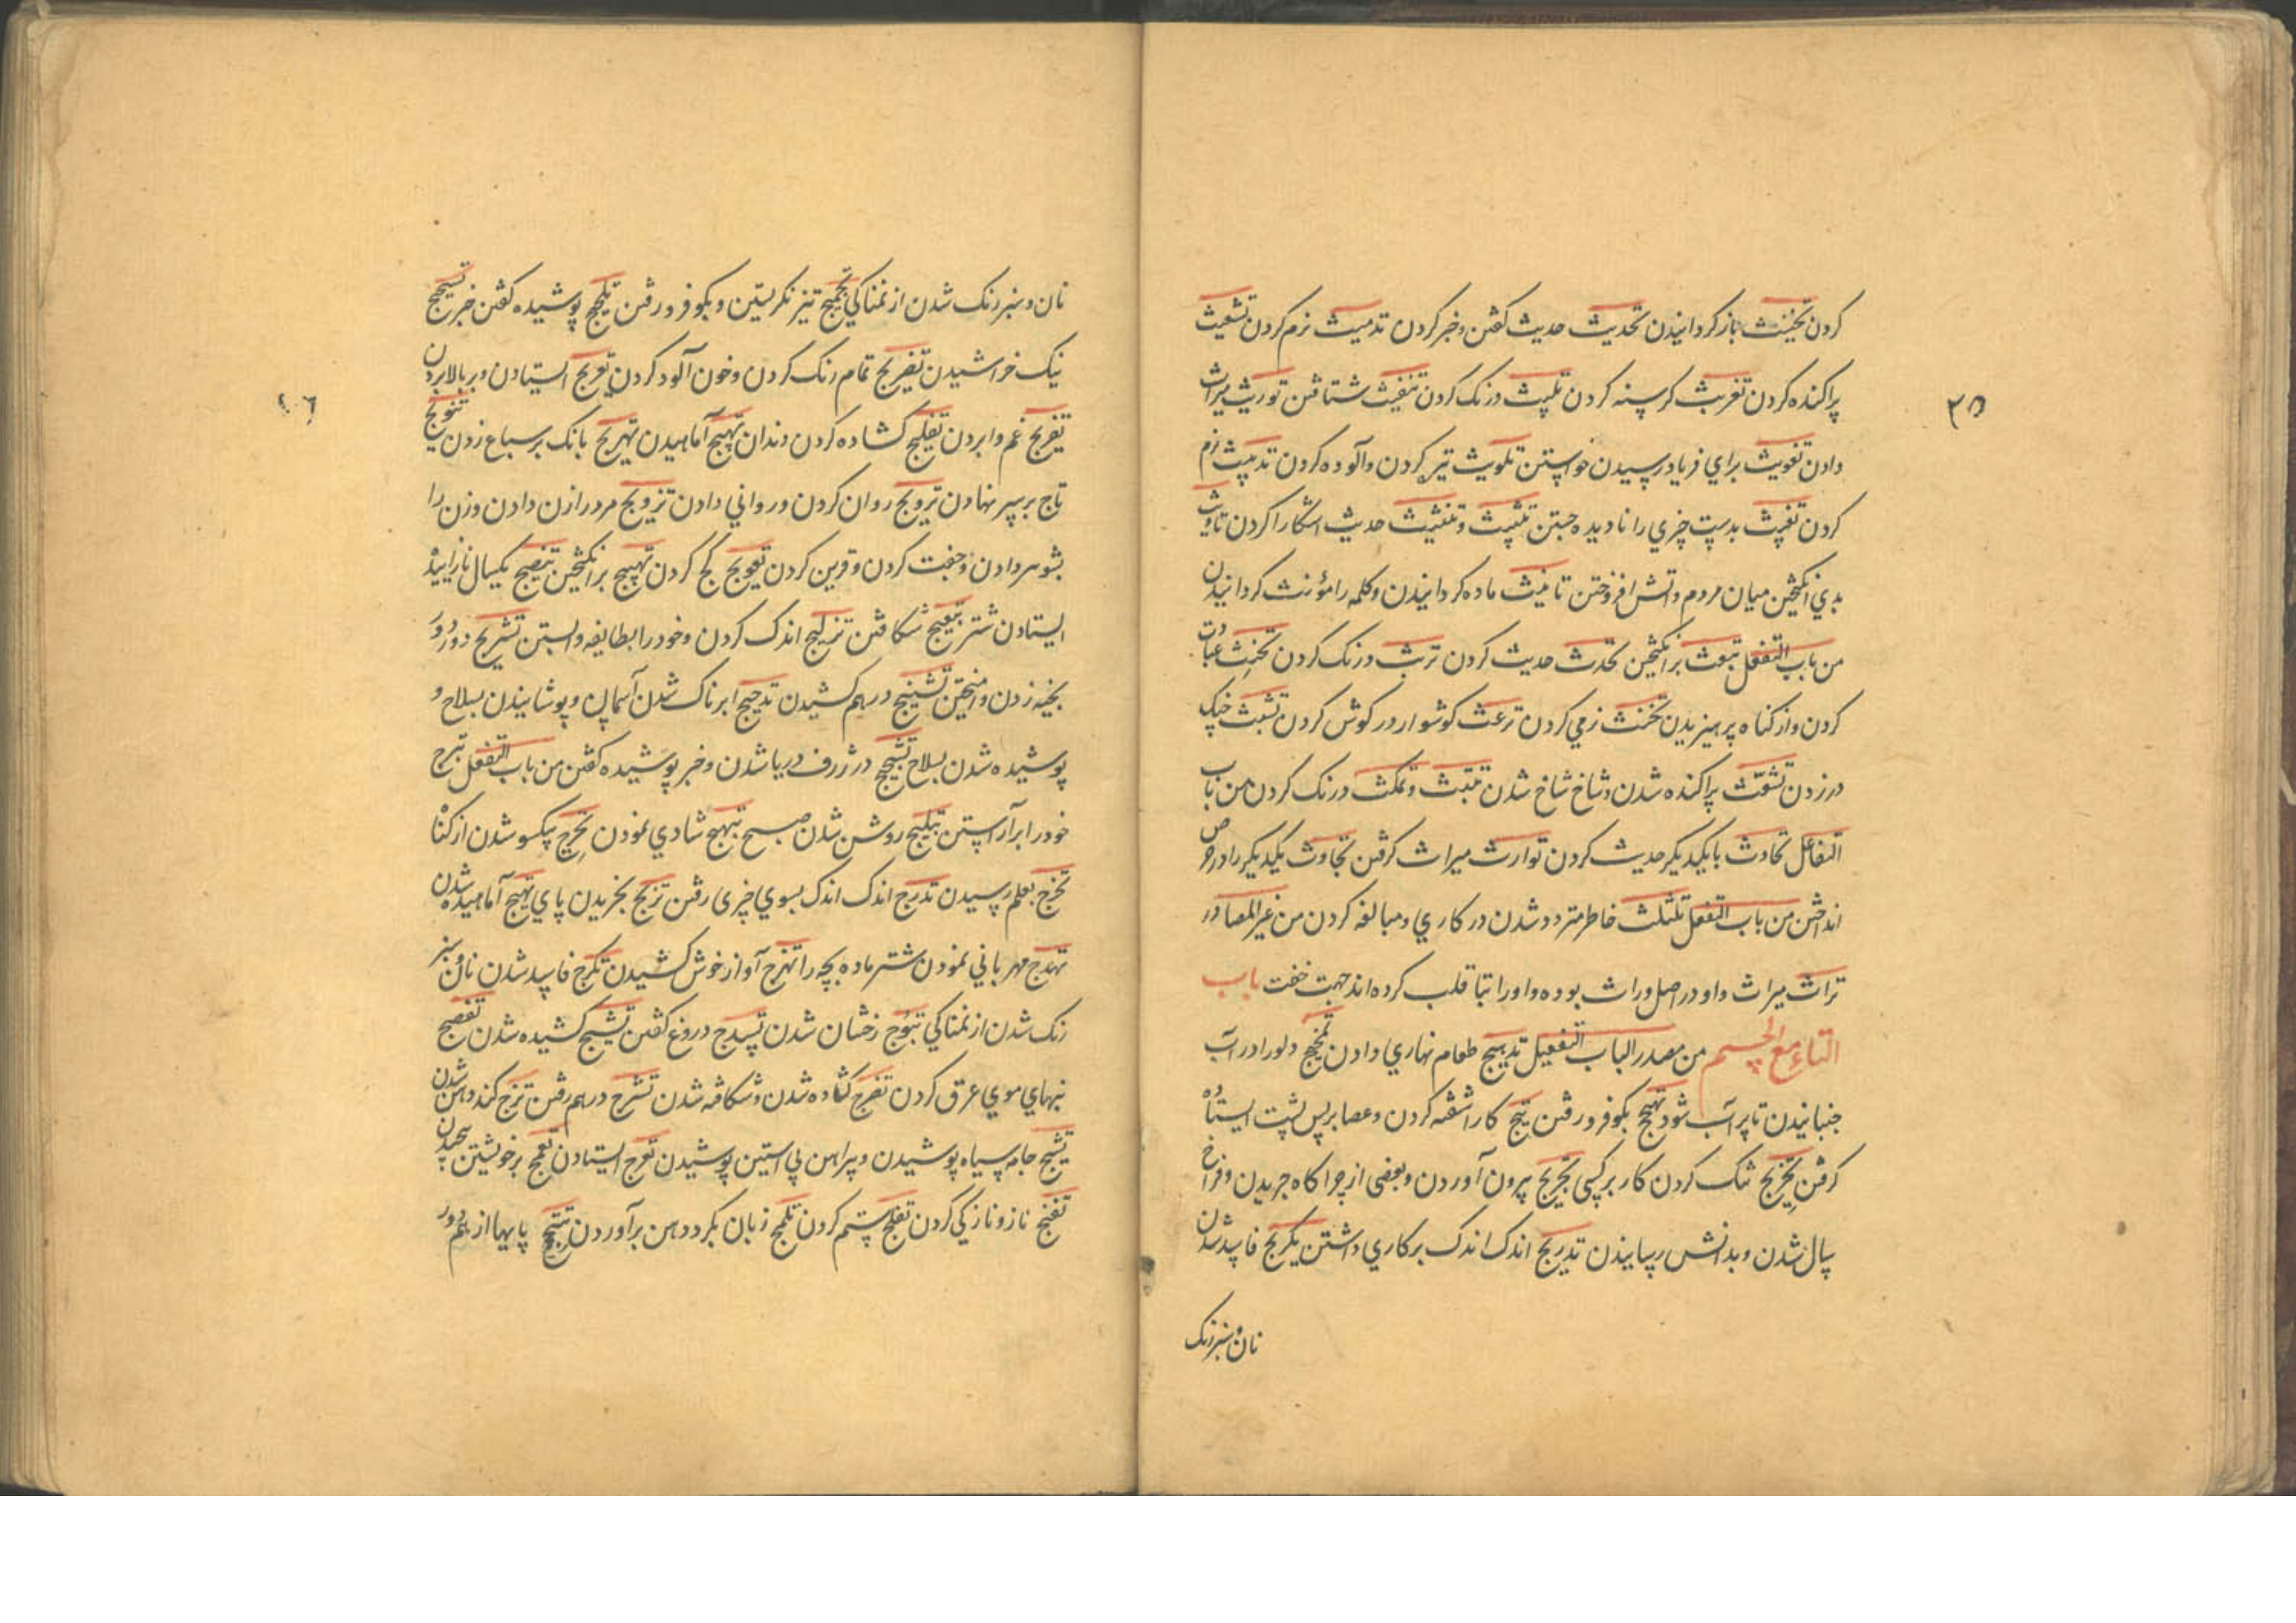 کردن تخنیث باز کردانیدن تحدیث حدیث کفتن و خبر کردن تدمیث نرم کردن تشعیث
پراکنده کردن تغریث کرسنه کردن تلبیث درنک کردن تنفیث شتافتن توریث میراث
۲۵
دادن تغویث برای فریاد رسیدن خواستن تلویث تیره کردن و آلوده کردن تدمیث نرم
کردن تفیث بدست چیزی را نادیده جستن تنثیث و تنفیث حدیث اشکارا کردن تاریث
بدی انکیختن میان مردم و اتش افروختن تانیث ماده کردانیدن و کلمه را مؤنث کردانیدن
من باب التفعل تبعث برانکیختن تحدث حدیث کردن تریث درنک کردن تحنث عبادت
کردن و از کناه پرهیزیدن تخنث نرمی کردن ترعث کوشوار در کوش کردن تشبث چنک
در زدن تشعث پراکنده شدن و شاخ شاخ شدن تلبث و تمکث درنک کردن من باب
التفاعل تحادث با یکدیکر حدیث کردن توارث میراث کرفتن تحاوث یکدیکر را در حرص
انداختن من باب التفعلل تلثلث خاطر متردد شدن در کاری و مبالغه کردن من غیر المصادر
تراث میراث و او در اصل وراث بوده واو را بتا قلب کرده اند جهت خفت باب
التاء مع الجیم من مصدر الباب التفعیل تدبیج طعام نهاری دادن تمخیج دلو را در آب
جنبانیدن تا پر آب شود تهجیج بکو فرو رفتن ثبج کار اشفته کردن و عصا بر پس پشت ایستاده
کرفتن تحریج تنک کردن کار بر کسی تخریج بیرون آوردن و بعضی از چراکاه چریدن و فراخ
سال شدن و بدانش رسانیدن تدریج اندک اندک بر کاری داشتن تکریج فاسد شدن
نان و سبز رنک
نان و سبز رنک شدن از نمناکی تحمیج تیز نکریستن و بکو فرو رفتن تلجیج پوشیده کفتن خبر تسحیج
نیک خراشیدن تضریج تمام رنک کردن و خون آلود کردن تعریج ایستادن و بر بالا بردن
۲۶
تفریج غم وا بردن تفلیج کشاده کردن دندان تهبیج آماهیدن تهریج بانک بر سباع زدن تتویج
تاج بر سر نهادن ترویج روان کردن و روانی دادن تزویج مرد را زن دادن و زن را
بشوهر دادن و جفت کردن و قرین کردن تعویج کج کردن تهییج برانکیختن تنضیج یکسال نازاینده
ایستادن شتر تبعیج شکافتن تزلیج اندک کردن و خود را بطایفه وا بستن تشریج دور دور
بخیه زدن و امیختن تشنیج درهم کشیدن تدجیج ابرناک شدن آسمان و پوشانیدن بسلاح و
پوشیده شدن بسلاح تلجیج در ژرف دریا شدن و خبر پوشیده کفتن من باب التفعل تبرج
خود را بر آراستن تبلج روشن شدن صبح تبهج شادی نمودن تحرج یکسو شدن از کناه
تخرج بعلم رسیدن تدرج اندک اندک بسوی چیزی رفتن تزلج بخزیدن پای تهبج آماهیده شدن
تهدج مهربانی نمودن شتر ماده بچه را تهزج آواز خوش کشیدن تکرج فاسد شدن نان و سبز
رنک شدن از نمناکی تبوج رخشان شدن تسدج دروغ کفتن تشنج کشیده شدن تفصج
بنهای موی عرق کردن تفرج کشاده شدن و شکافته شدن تشرج درهم رفتن تزج کند دهن شدن
تسبج جامه سیاه پوشیدن و پیراهن بی استین پوشیدن تعرج ایستادن تعمج بر خویشتن پیچیدن
تغنج ناز و نازکی کردن تفلج ستم کردن تلمج زبان بکرد دهن برآوردن تفحج پایها از هم دور